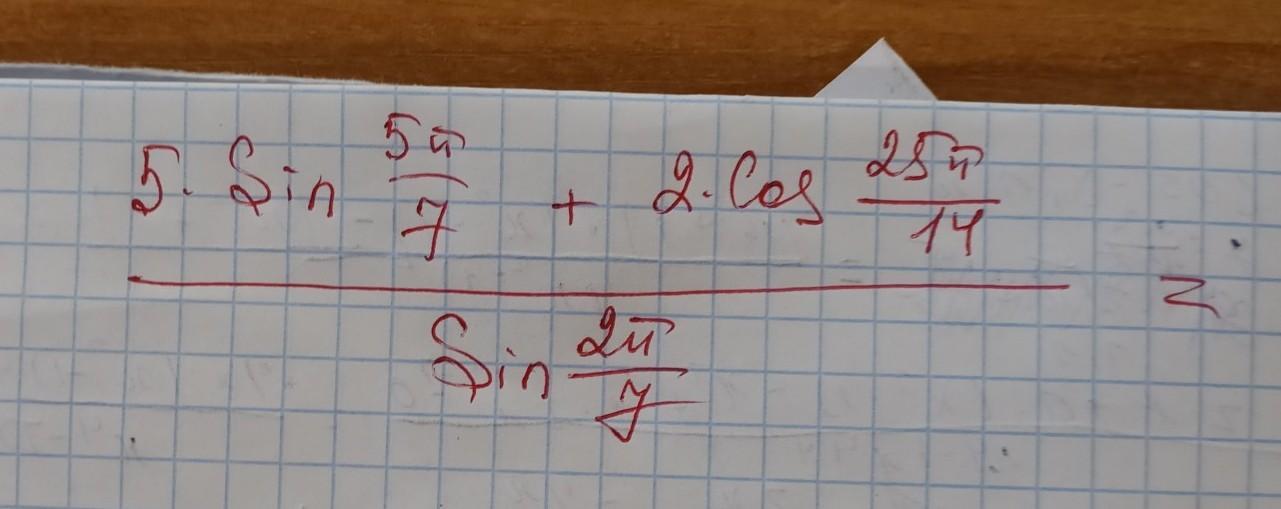 5 · Sin 5π/7 + 2 · Cos 25π/14
Sin 2π/7
=